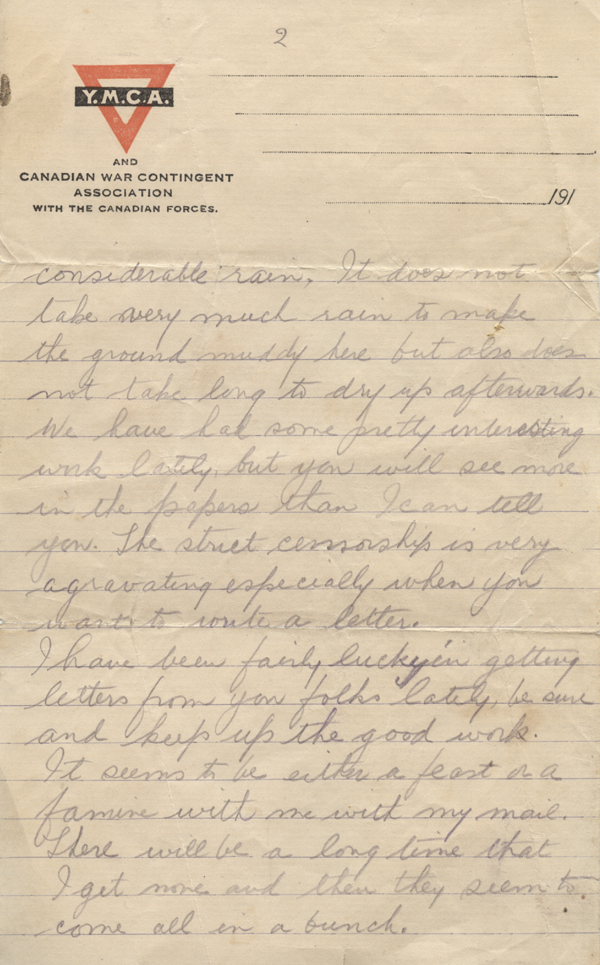 2
Y.M.C.A.
AND
CANADIAN WAR CONTINGENT
ASSOCIATION
WITH THE CANADIAN FORCES.
191
considerable rain. It does not
take very much rain to make
the ground muddy here but also does
not take long to dry up afterwards.
We have had some pretty interesting
work lately, but you will see more
in the papers than I can tell
you. The strict censorship is very
agravating especially when you
want to write a letter.
I have been fairly lucky in getting
letters from you folks lately, be sure
and keep up the good work.
It seems to be either a feast or a
famine with me with my mail.
There will be a long time that
I get none and then they seem to
come all in a bunch.